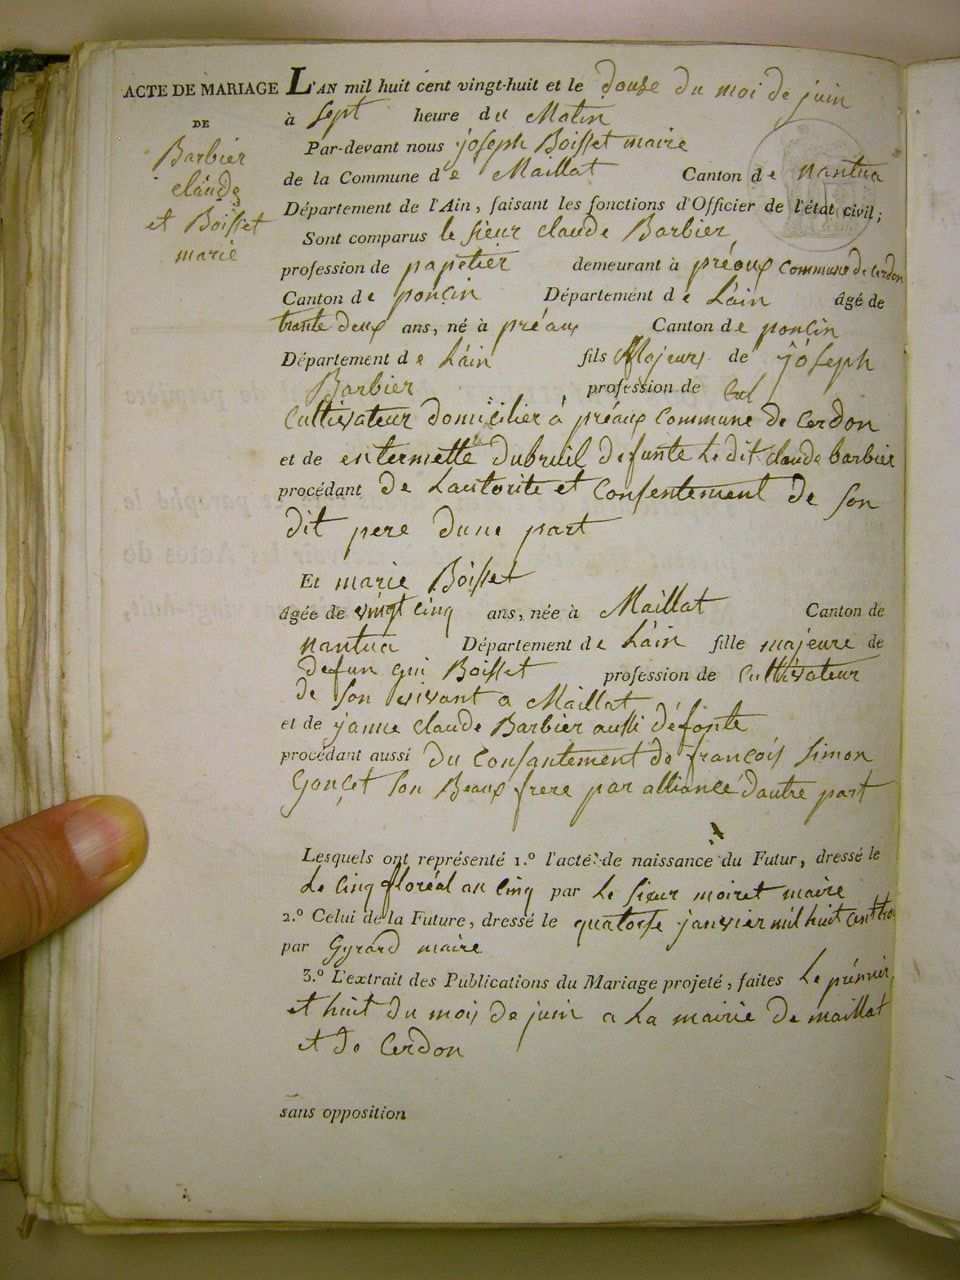 ACTE DE MARIAGE
DE
Barbier
claude
et Boisset
marie
L'AN mil huit cent vingt-huit et le douse du moi de juin
à sept heure du Matin
Par-devant nous joseph Boisset maire
de la Commune de Maillat Canton de nantua
Département de l'Ain, faisant les fonctions d'Officier de l'état civil;
Sont comparus le sieur claude Barbier
profession de papetier demeurant à préaux Commune de Cerdon
Canton de poncin Département de L'ain âgé de
trante deux ans, né à préaux Canton de poncin
Département de L'ain fils Majeurs de jôseph
Barbier profession de Cul
Cultivateur domicilier à préaux Commune de Cerdon
et de entermette dubreuil defunte Le dit claude barbier
procédant de Lautorite et Consentement de son
dit pere dune part
Et marie Boisset
âgée de vingt cinq ans, née à Maillat Canton de
nantua Département de L'ain fille majeure de
defun gui Boisset profession de Cultivateur
de son vivant a Maillat
et de janne claude Barbier aussi défonte
procédant aussi du Consantement de françois simon
Gonçet son Beaux frere par alliance dautre part
Lesquels ont représenté 1.º l'acte de naissance du Futur, dressé le
Le Cinq floréal an Cinq par Le Sieur moiret maire
2.º Celui de la Future, dressé le quatorse janvier mil huit Cent tro
par Gyrard maire
3.º L'extrait des Publications du Mariage projeté, faites Le prémier
et huit du mois de juin a La mairie de maillat
et de Cerdon
sans opposition